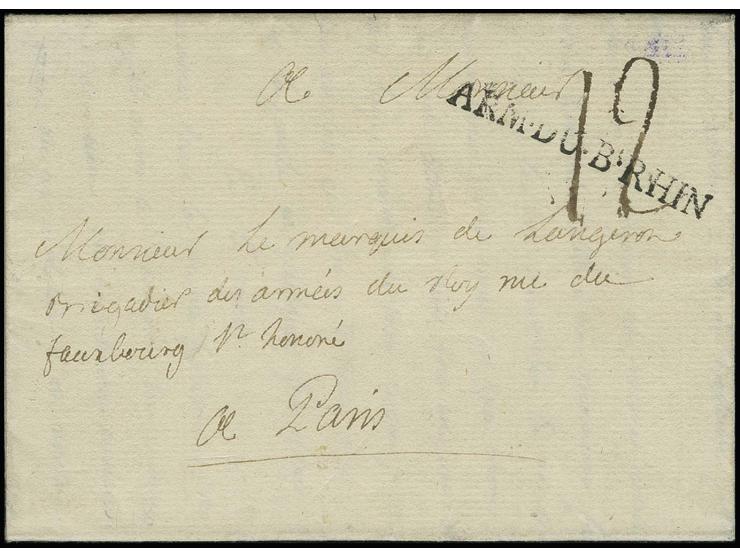 A Monsieur
ARM·DU·Bˢ·RHIN
12
Monsieur Le marquis de Langeron
Brigadier des armées du Roy rue du
fauxbourg St honoré
A Paris